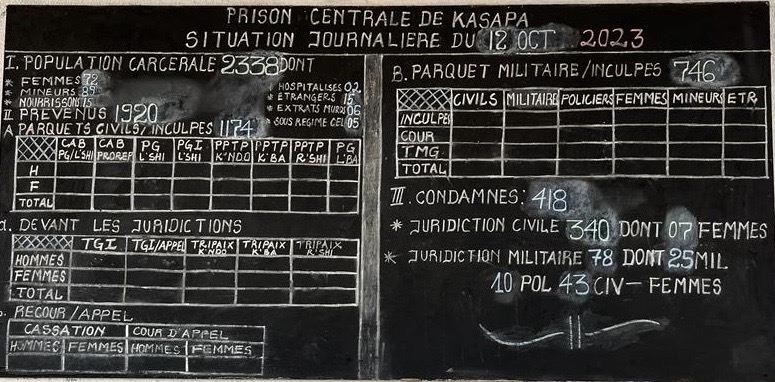 PRISON CENTRALE DE KASAPA
SITUATION JOURNALIERE DU 12 OCT 2023
I. POPULATION CARCERALE 2338 DONT
* FEMMES 72
* MINEURS 89
* NOURRISSONS 15
HOSPITALISES 02
* ETRANGERS 15
* EXTRATS MUROS 06
* SOUS REGIME CEL 05
II PREVENUS 1920
A PARQUETS CIVILS/INCULPES 1174
CAB PG/L'SHI CAB PROREP PG L'SHI PGI L'SHI PPTP K'NDO PPTP K'BA PPTP R'SHI PG L'BA
H
F
TOTAL
a. DEVANT LES JURIDICTIONS
TGI TGI/APPEL TRIPAIX K'NDO TRIPAIX K'BA TRIPAIX K'SHI
HOMMES
FEMMES
TOTAL
RECOUR/APPEL
CASSATION COUR D'APPEL
HOMMES FEMMES HOMMES FEMMES
B. PARQUET MILITAIRE/INCULPES 746
CIVILS MILITAIRE POLICIERS FEMMES MINEURS ETR.
INCULPES
COUR
TMG
TOTAL
III. CONDAMNES: 418
* JURIDICTION CIVILE 340 DONT 07 FEMMES
* JURIDICTION MILITAIRE 78 DONT 25 MIL
10 POL 43 CIV — FEMMES